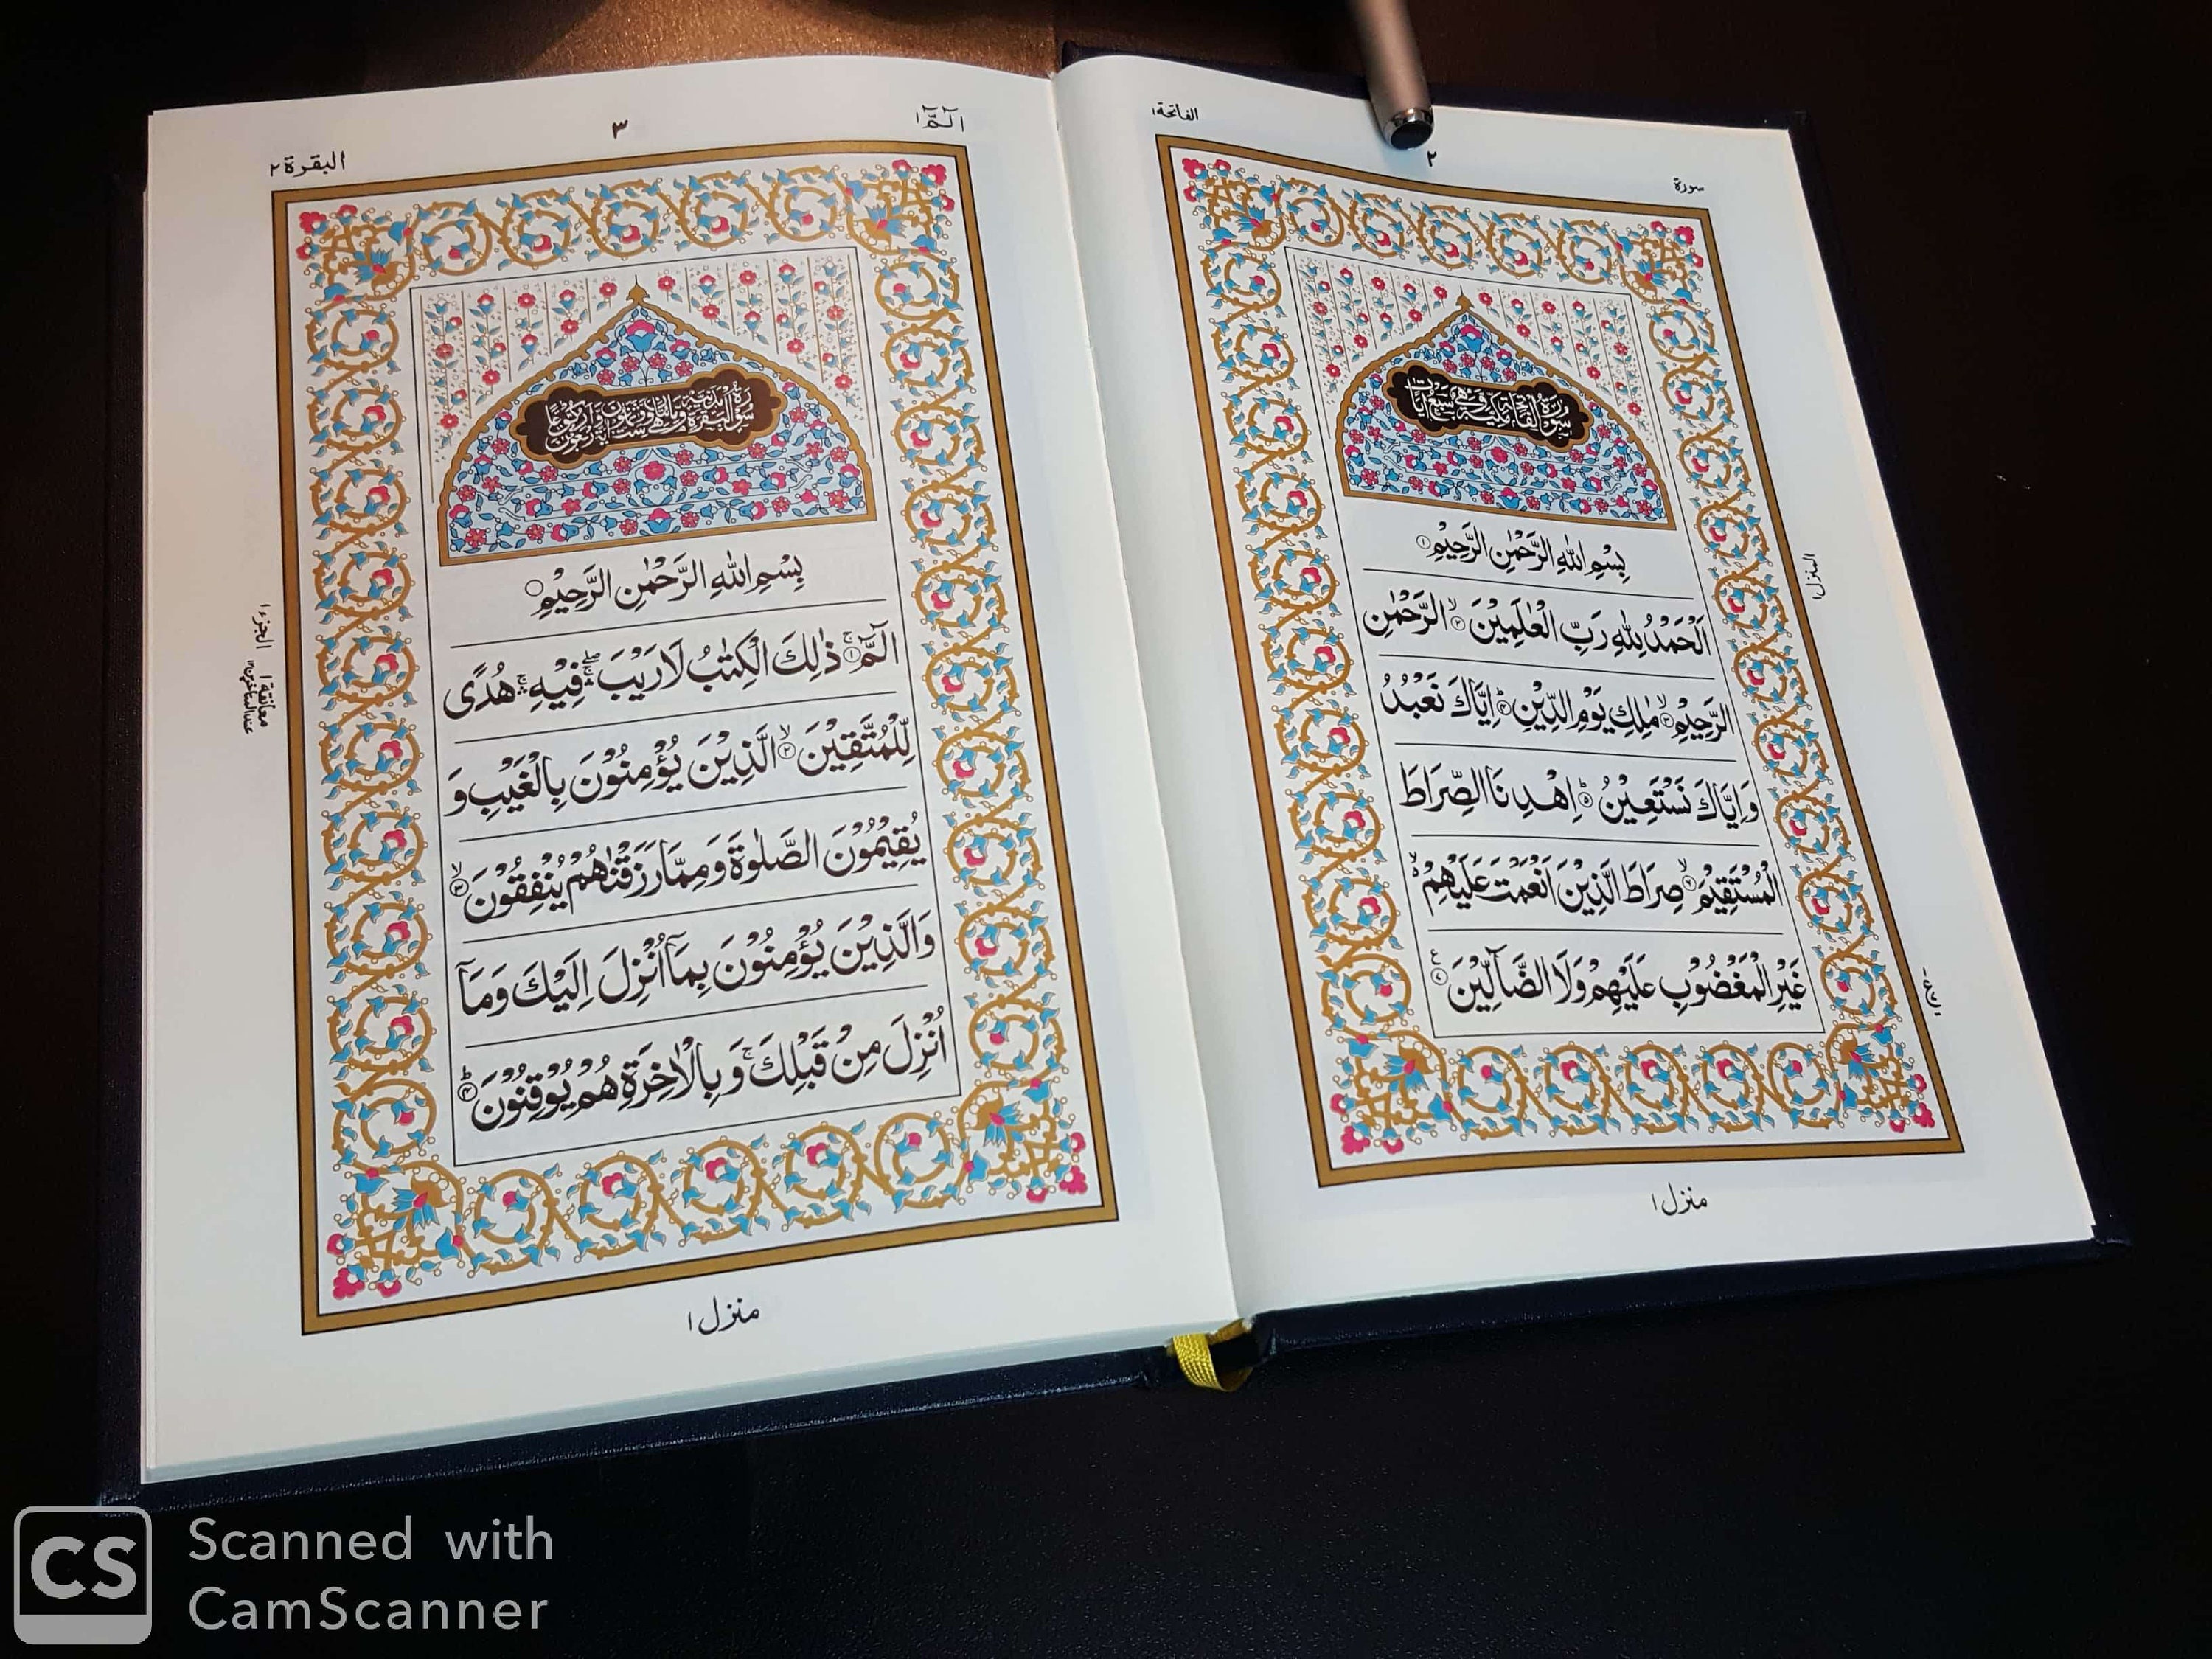 الفاتحة ١
٢
سورة
سورة الفاتحة مكية وهي سبع آيات
بِسْمِ اللّٰهِ الرَّحْمٰنِ الرَّحِيْمِ ۝١
اَلْحَمْدُ لِلّٰهِ رَبِّ الْعٰلَمِيْنَ ۙ۝٢ الرَّحْمٰنِ
الرَّحِيْمِ ۙ۝٣ مٰلِكِ يَوْمِ الدِّيْنِ ۝٤ؕ اِيَّاكَ نَعْبُدُ
وَ اِيَّاكَ نَسْتَعِيْنُ ۝٥ؕ اِهْدِنَا الصِّرَاطَ
الْمُسْتَقِيْمَ ۙ۝٦ صِرَاطَ الَّذِيْنَ اَنْعَمْتَ عَلَيْهِمْ ۙ۬
غَيْرِ الْمَغْضُوْبِ عَلَيْهِمْ وَلَا الضَّآلِّيْنَ ۝٧
المنزل ١
منزل ١
الٓمّٓ ١
٣
البقرة ٢
بِسْمِ اللّٰهِ الرَّحْمٰنِ الرَّحِيْمِ ۝
الٓمّٓ ۚ۝١ ذٰلِكَ الْكِتٰبُ لَا رَيْبَ ۛۖۚ فِيْهِ ۛۚ هُدًى
لِّلْمُتَّقِيْنَ ۙ۝٢ الَّذِيْنَ يُؤْمِنُوْنَ بِالْغَيْبِ وَ
يُقِيْمُوْنَ الصَّلٰوةَ وَمِمَّا رَزَقْنٰهُمْ يُنْفِقُوْنَ ۙ۝٣
وَالَّذِيْنَ يُؤْمِنُوْنَ بِمَآ اُنْزِلَ اِلَيْكَ وَمَآ
اُنْزِلَ مِنْ قَبْلِكَ ۚ وَ بِالْاٰخِرَةِ هُمْ يُوْقِنُوْنَ ۝٤ؕ
الجزء ١
معانقة ١
عند المتأخرين ١٢
منزل ١
CS
Scanned with
CamScanner